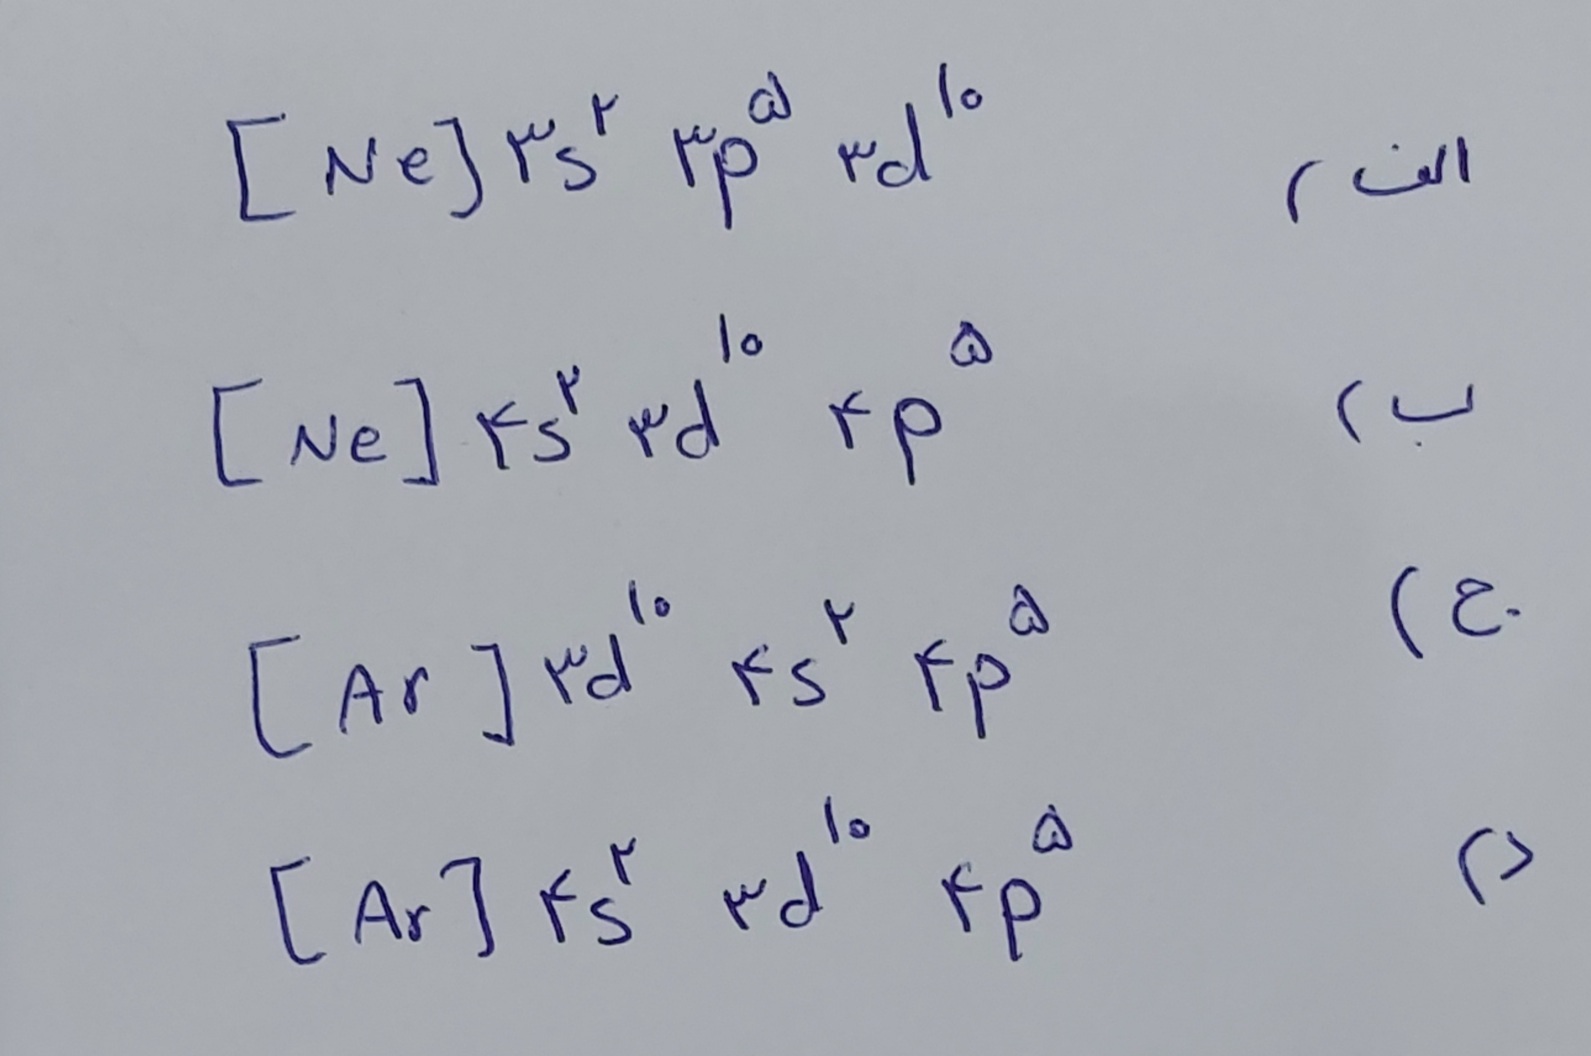 الف) [Ne] ۳s^۲ ۳p^۵ ۳d^۱۰
ب) [Ne] ۴s^۲ ۳d^۱۰ ۴p^۵
ج) [Ar] ۳d^۱۰ ۴s^۲ ۴p^۵
د) [Ar] ۴s^۲ ۳d^۱۰ ۴p^۵